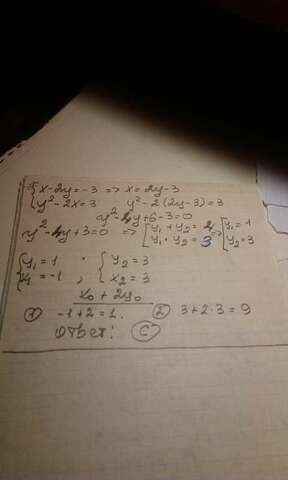 {x-2y=-3 => x=2y-3
{y²-2x=3 y²-2(2y-3)=3
y²-4y+6-3=0
y²-4y+3=0 => [y₁+y₂=4 => [y₁=1
[y₁·y₂=3 [y₂=3
{y₁=1 ; {y₂=3
{x₁=-1 {x₂=3
x₀+2y₀
① -1+2=1. ② 3+2·3=9
Ответ: Ⓒ